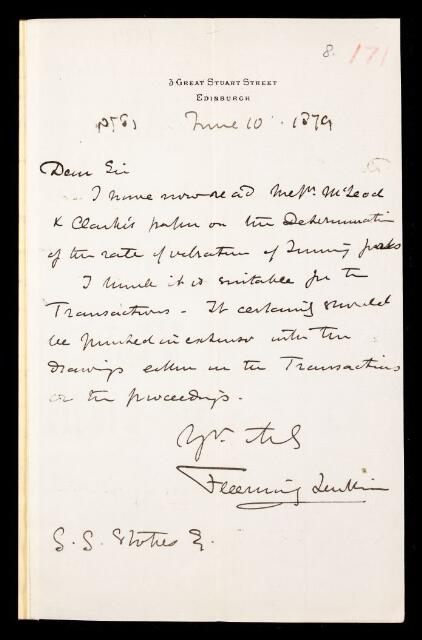 8. 171
3 GREAT STUART STREET
EDINBURGH
June 10. 1879
Dear Sir
I have now read Messrs. McLeod
& Clarke's paper on the Determination
of the rate of vibration of Tuning forks
I think it is suitable for the
Transactions - It certainly should
be printed in extenso with the
drawings either in the Transactions
or the proceedings.
Fleeming Jenkin
G. G. Stokes E.